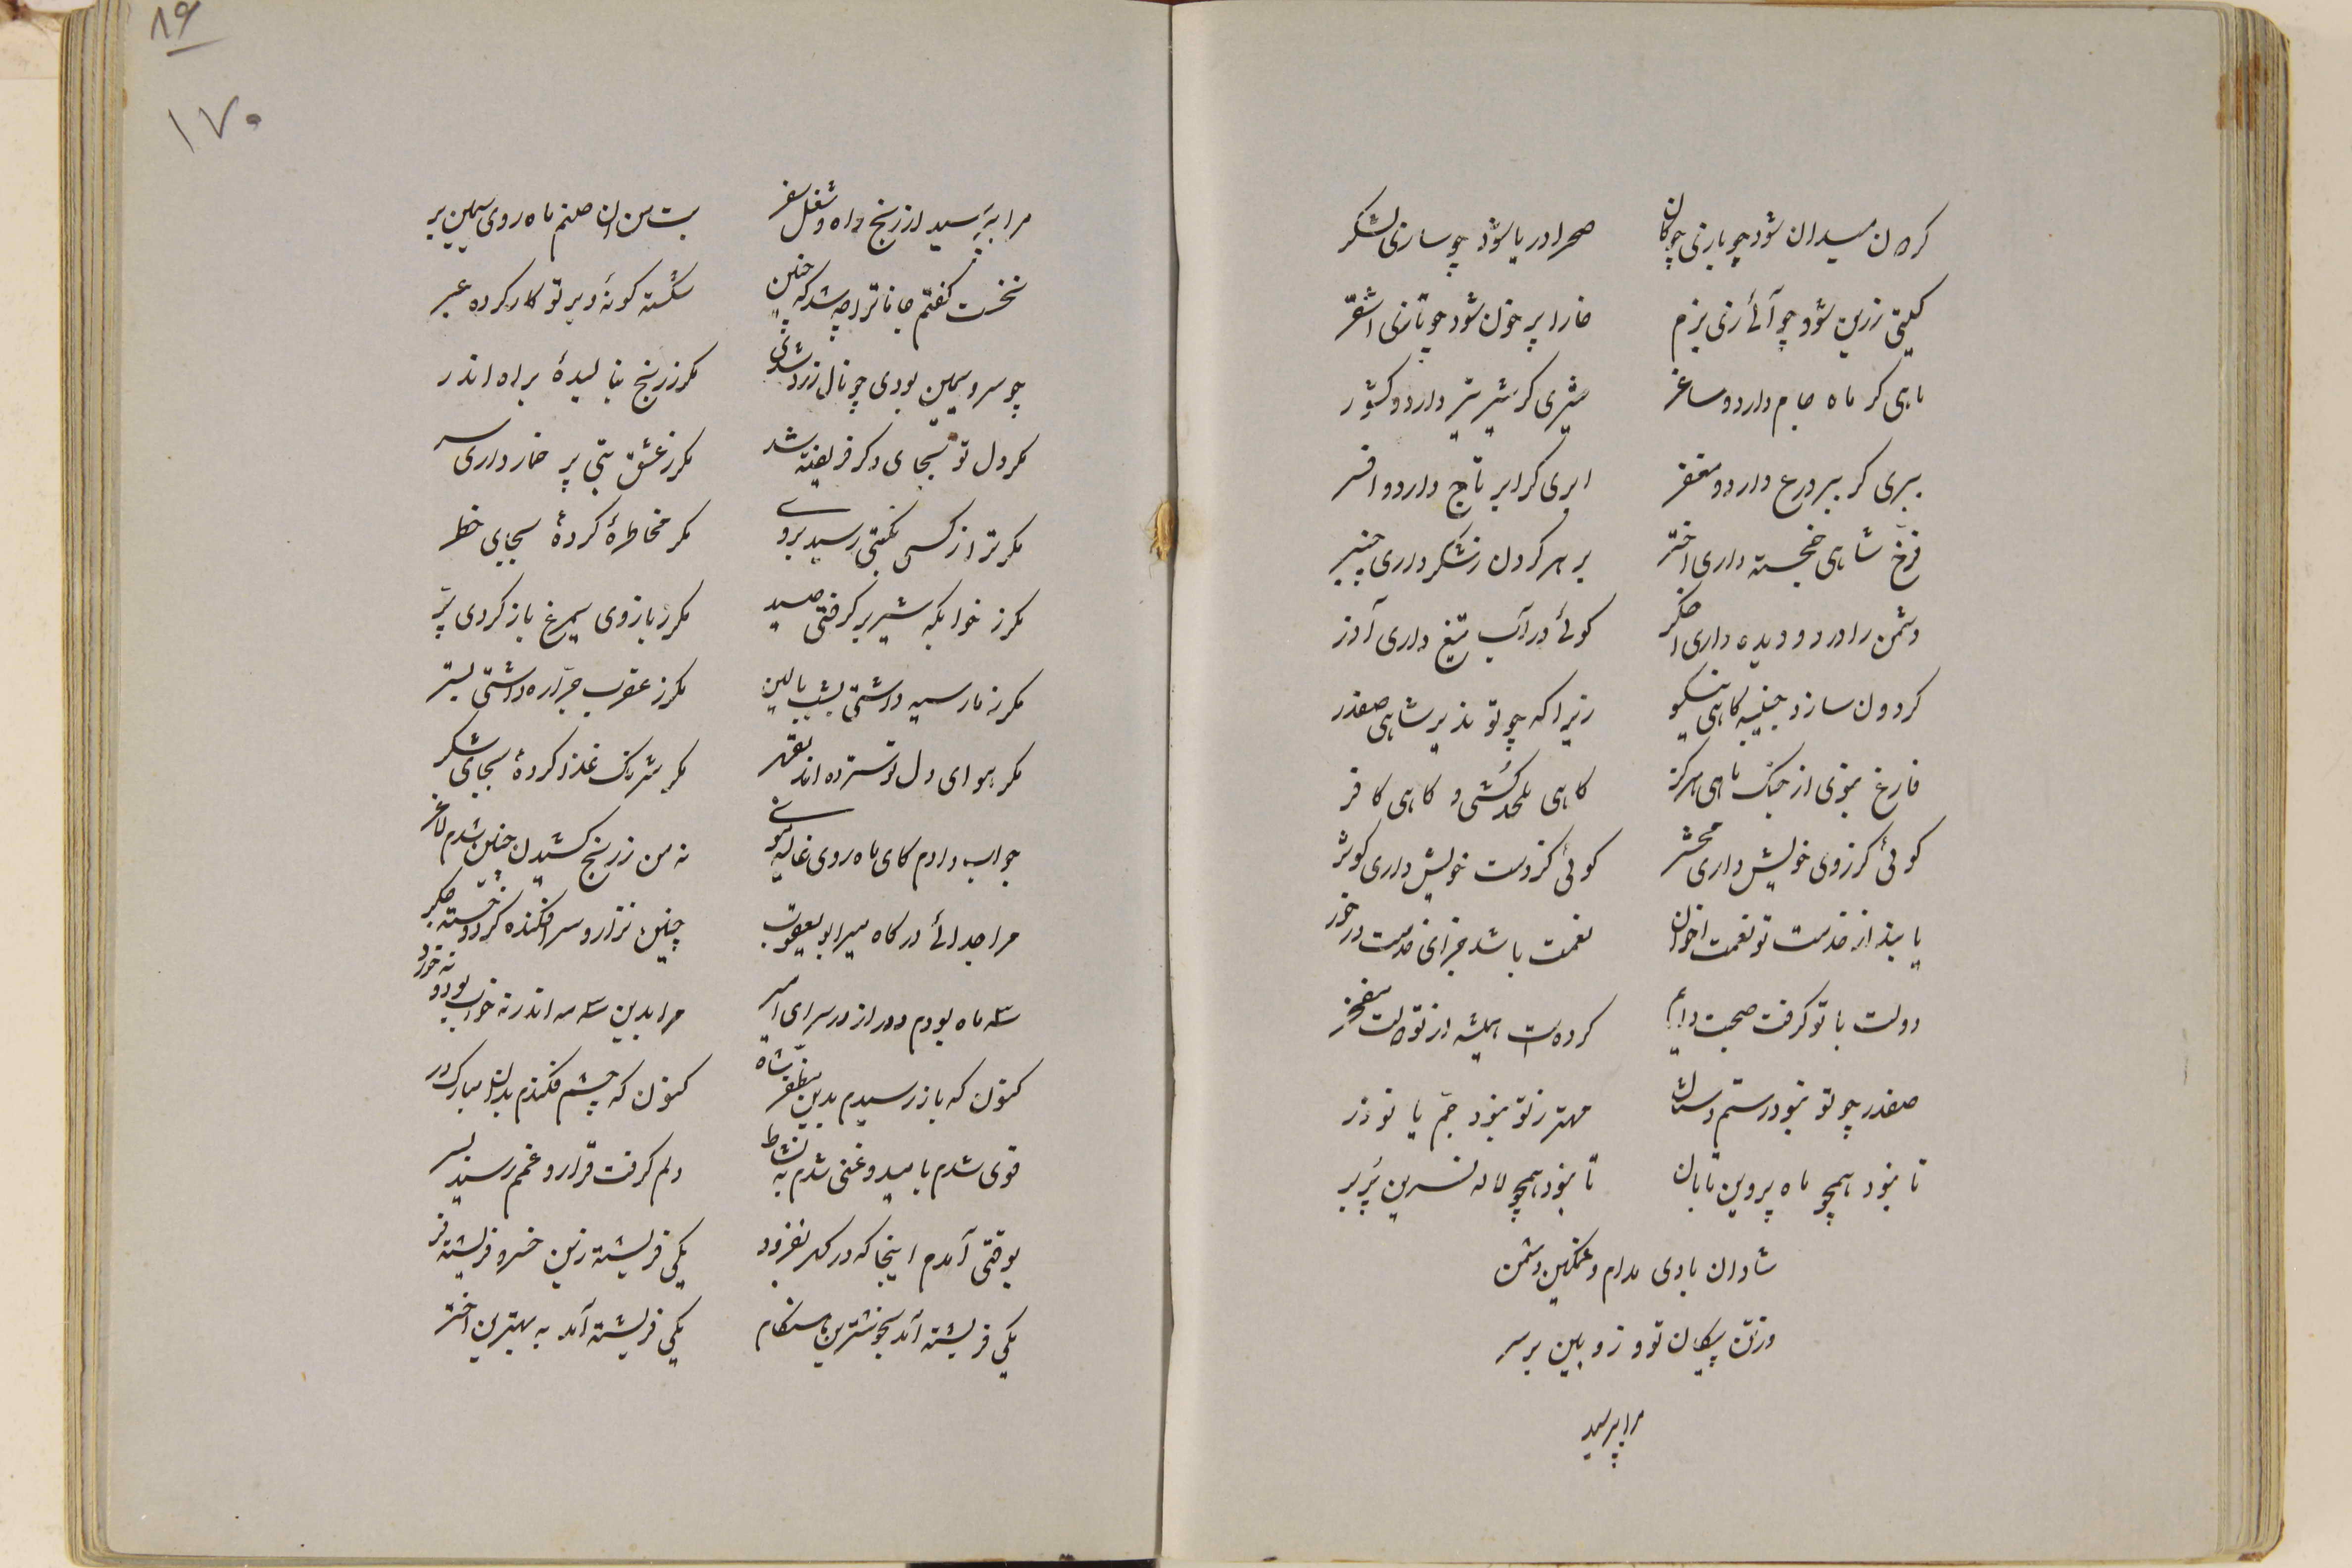 کردن میدان شود چو یازی چوکان صحرا دریا شود چو سازی لشکر
کیتی زرین شود چو آئی زی بزم خارا پر خون شود چو تازی اشقر
ماهی کر ماه جام دارد و ساغر شیری کر شیر تیر دارد و کشور
ببری کر ببر درع دارد و مغفر ابری کر ابر تاج دارد و افسر
فرخ شاهی خجسته داری اختر بر هر کردن ز شکر داری چنبر
دشمن را در دو دیده داری اخکر کوئی در آب تیغ داری آذر
کردون سازد جنیبه کاهی نیکو زیرا که چو تو ندید شاهی صفدر
فارغ نبوی از جنک ماهی هرکز کاهی ملحد کشی و کاهی کافر
کوئی کز روی خویش داری محشر کوئی کز دست خویش داری کوثر
یابند از خدمت تو نعمت اخوان نعمت باشد جزای خدمت درخور
دولت با تو کرفت صحبت دایم کرده است همیشه از تو ملت مفخر
صفدر چو تو نبود رستم دستان مهتر ز تو نبود جم یا نوذر
تا نبود همچو ماه پروین تابان تا نبود همچو لاله نسرین پربر
شادان بادی مدام و غمکین دشمن
وز تن پیکان تو و زوبین بر سر
مرا بپرسید
۸۶
۱۷۰
مرا بپرسید از رنج راه و شغل سفر بت من آن صنم ماه روی سیمین بر
نخست کفتم جانا ترا چه شد که چنین شکسته کونهٔ و بر تو کار کرده عبر
چو سرو سیمین بودی چو نال زرد شدی مکر ز رنج بنالیدهٔ براه اندر
مکر دل تو بجای دکر فریفته شد مکر ز عشق بتی پر خمار داری سر
مکر ترا ز کسی نکبتی رسید بروی مکر مخاطرهٔ کردهٔ بجای خطر
مکر ز خوابکه شیر بر کرفتی صید مکر ز بازوی سیمرغ باز کردی پر
مکر ز مار سیه داشتی بشب بالین مکر ز عقرب جراره داشتی بستر
مکر هوای دل تو ستزده اند بقهر مکر شرنک غذا کردهٔ بجای شکر
جواب دادم کای ماه روی غالیه موی نه من ز رنج کشیدن چنین شدم لاغر
مرا جدائی درکاه میر ابو یعقوب چنین نزار و سرافکنده کرد و خسته جکر
سه ماه بودم دور از در سرای امیر مرا بدین سه مه اندر نه خواب بود و نه خورد
کنون که باز رسیدم بدین مظفر شاه کنون که چشم فکندم بدان مبارک در
قوی شدم بامید و غنی شدم به نشاط دلم کرفت قرار و غمم رسید بسر
بوقتی آمدم اینجا که در کهر بفزود یکی فریشته زین خسرو فریشته فر
یکی فریشته آمد بخوشترین هنکام یکی فریشته آمد به بهترین اختر